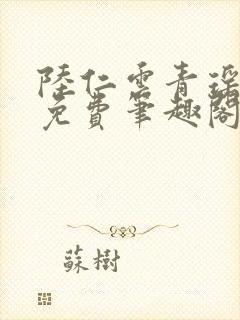 陸仁雲青瑤
免費筆趣閣
蘇樹